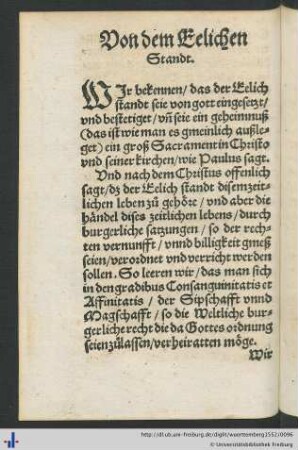 Von dem Eelichen
Standt.
WIr bekennen/ das der Eelich
standt seie von gott eingesetzt/
vnd bestetiget/ vñ seie ein geheimnuß
(das ist wie man es gmeinlich außle-
get) ein groß Sacrament in Christo
vnd seiner kirchen/ wie Paulus sagt.
Vnd nach dem Christus offenlich
sagt/ dz der Eelich standt disem zeit-
lichen leben zů gehöre/ vnd aber die
händel dises zeitlichen lebens/ durch
burgerliche satzungen/ so der rech-
ten vernunfft/ vnnd billigkeit gmeß
seien/ verordnet vnd verricht werden
sollen. So leeren wir/ das man sich
in den gradibus Consanguinitatis et
Affinitatis/ der Sipschafft vnnd
Magschafft/ so die Weltliche bur-
gerliche recht die da Gottes ordnung
seien zůlassen/ verheiratten möge.
Wir
http://dl.ub.uni-freiburg.de/diglit/wuerttemberg1552/0096
© Universitätsbibliothek Freiburg